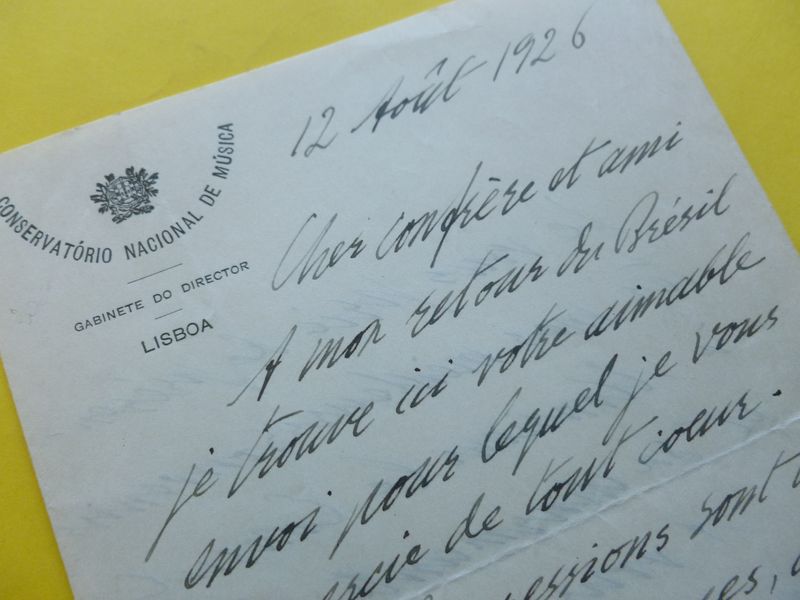 CONSERVATÓRIO NACIONAL DE MÚSICA
GABINETE DO DIRECTOR
LISBOA
12 Août 1926
Cher confrère et ami
A mon retour du Brésil
je trouve ici votre aimable
envoi pour lequel je vous
de tout coeur.
sont